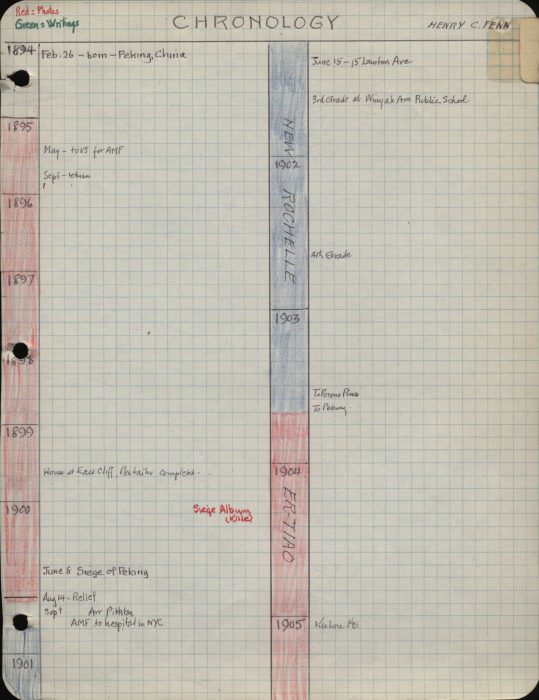 Red = Photos
Green = Writings
CHRONOLOGY
HENRY C. FENN
1894
Feb. 26 - born - Peking, China
1895
May - to US for AMF
Sept - return
1896
1897
1898
1899
House at East Cliff, Peitaiho completed.
1900
Siege Album
June 8 Siege of Peking
Aug 14 - Relief
Sept Arr Pittston
AMF to hospital in NYC
1901
June 15 - 15 Lawton Ave
3rd Grade at Winyah Ave Public School
NEW ROCHELLE
1902
4th Grade
1903
To Pocono Pines
To Peking
1904
ER-TIAO
1905
Ku Lou Hsi